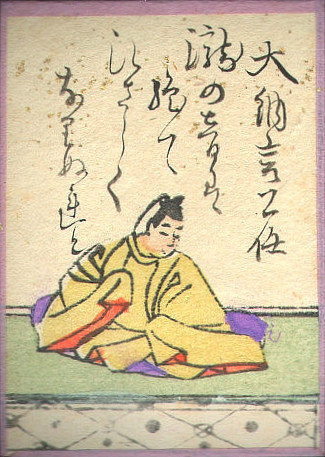 大納言公任
瀧の音は
絶て
久しく
なりぬれと